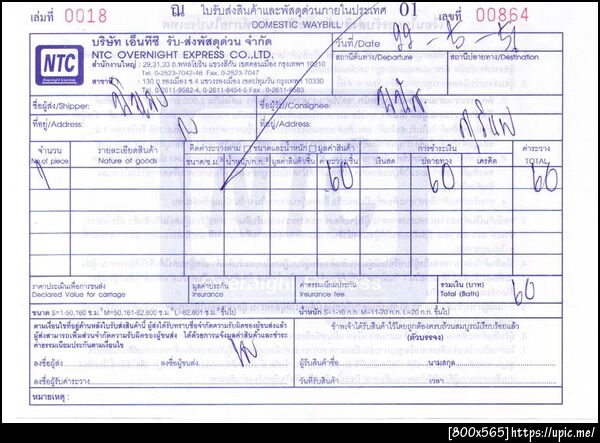 เล่มที่ 0018 ณ ใบรับส่งสินค้าและพัสดุด่วนภายในประเทศ 01 เลขที่ 00864
DOMESTIC WAYBILL
NTC
Overnight Express
บริษัท เอ็นทีซี รับ-ส่งพัสดุด่วน จำกัด
NTC OVERNIGHT EXPRESS CO.,LTD.
สำนักงานใหญ่ : 29,31,33 ถ.พหลโยธิน แขวงสีกัน เขตดอนเมือง กรุงเทพฯ 10210
Tel. 0-2523-7042-46 Fax. 0-2523-7047
สาขา : 130 ถ.รองเมือง ซ.4 แขวงรองเมือง เขตปทุมวัน กรุงเทพฯ 10330
Tel. 0-2611-9582-4, 0-2611-8454-5 Fax : 0-2611-9583
วันที่/Date
สถานีต้นทาง/Departure สถานีปลายทาง/Destination
ชื่อผู้ส่ง/Shipper: ชื่อผู้รับ/Consignee:
ที่อยู่/Address: ที่อยู่/Address:
จำนวน รายละเอียดสินค้า คิดค่าระวางตาม ขนาดและน้ำหนัก มูลค่าสินค้า การชำระเงิน ค่าระวาง
No.of piece Nature of goods ขนาด/ซ.ม.³ น้ำหนัก/ก.ก. มูลค่าสินค้า/ชิ้น ค่าระวาง/ชิ้น เงินสด ปลายทาง เครดิต TOTAL
1 60 60 60
ราคาประเมินเพื่อการขนส่ง มูลค่าประกัน ค่าธรรมเนียมประกัน รวมเงิน (บาท)
Declared Value for carriage Insurance Insurance fee Total (Bath) 60
ขนาด S=1-50,160 ซ.ม.³ M=50,161-82,800 ซ.ม.³ L=82,801 ซ.ม.³ ขึ้นไป น้ำหนัก S=1-10 ก.ก. M=11-20 ก.ก. L=20 ก.ก. ขึ้นไป
ตามเงื่อนไขที่อยู่ด้านหลังใบรับส่งสินค้านี้ ผู้ส่งได้รับทราบข้อจำกัดความรับผิดของผู้ขนส่งแล้ว
ผู้ส่งสามารถเพิ่มส่วนจำกัดความรับผิดของผู้ขนส่ง ได้ด้วยการแจ้งมูลค่าสินค้าและชำระ
ค่าธรรมเนียมประกันตามเงื่อนไข
ข้าพเจ้าได้รับสินค้าไว้โดยถูกต้องครบถ้วนสมบูรณ์เรียบร้อยแล้ว
(ตัวบรรจง)
ลงชื่อผู้ส่ง ลงชื่อผู้รับส่ง ผู้รับสินค้าชื่อ นามสกุล
ลงชื่อผู้รับค่าระวาง วันที่รับสินค้า เวลา
หมายเหตุ :
[800x565]https://upic.me/